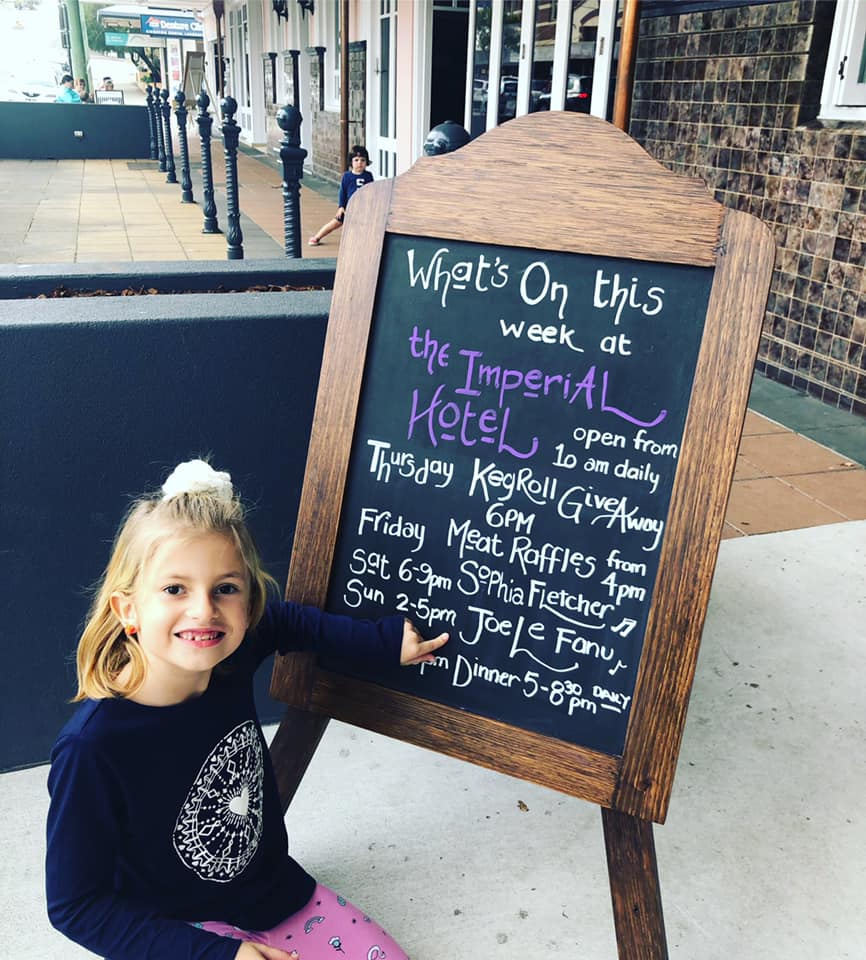 What's On this
week at
the Imperial
Hotel
open from
10 am daily
Thursday KegRoll GiveAway
6PM
Friday Meat Raffles from
4pm
Sat 6-9pm Sophia Fletcher
Sun 2-5pm Joe Le Fanu
pm Dinner 5-8³⁰pm DAILY